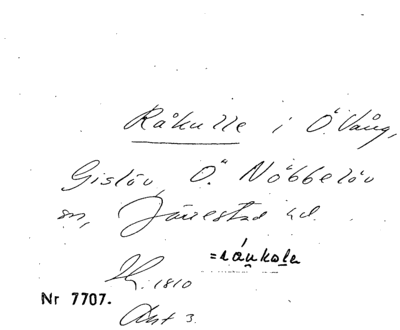 Råkulle i Ö. Vång,
Gislöv, Ö. Nöbbelöv
sn, Järrestad hd.
=råukolɘ
H. 1810
Nr 7707.
Akt 3.